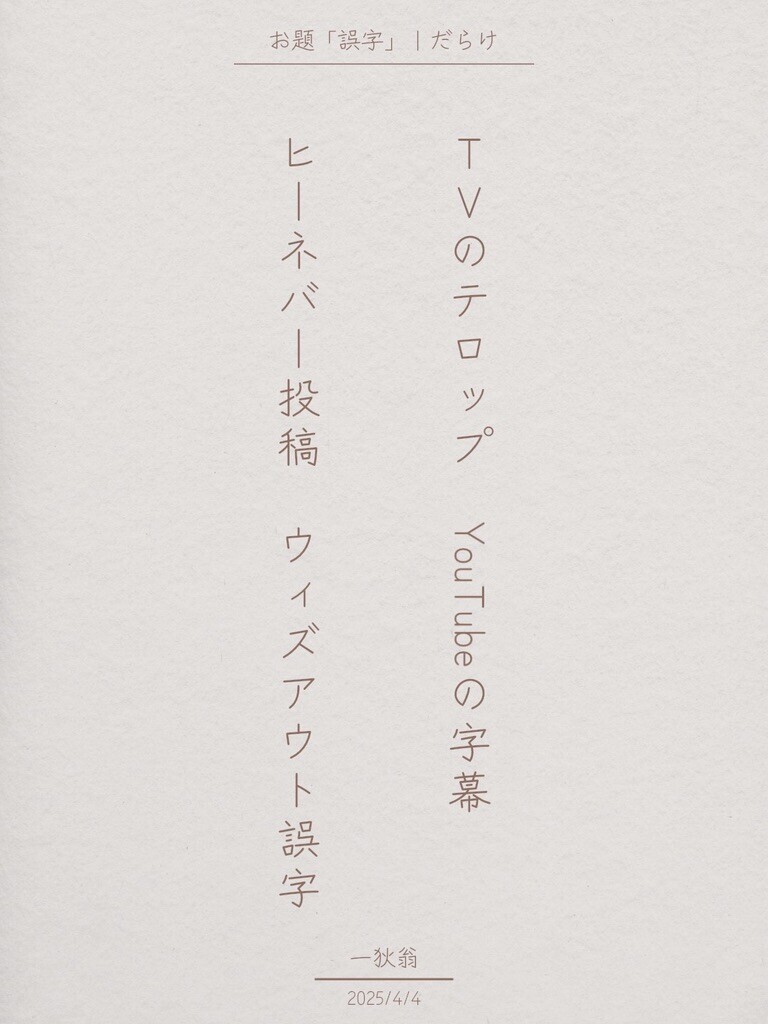 お題「誤字」｜だらけ
TVのテロップ　YouTubeの字幕
ヒーネバー投稿　ウィズアウト誤字
一狄翁
2025/4/4